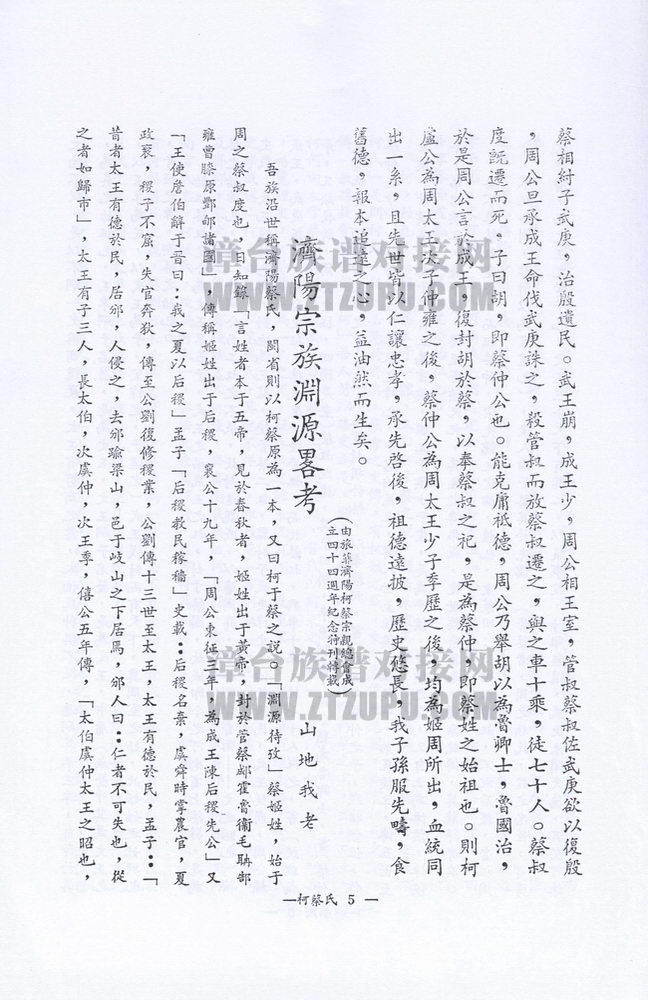 蔡相紂子武庚，治殷遺民。武王崩，成王少，周公相王室，管叔蔡叔佐武庚欲以復殷
，周公旦承成王命伐武庚誅之，殺管叔而放蔡叔遷之，與之車十乘，徒七十人。蔡叔
度旣遷而死。子曰胡，即蔡仲公也。能克庸祗德，周公乃舉胡以為魯卿士，魯國治，
於是周公言於成王，復封胡於蔡，以奉蔡叔之祀，是為蔡仲，即蔡姓之始祖也。則柯
盧公為周太王次子仲雍之後，蔡仲公為周太王少子季歷之後，均為姬周所出，血統同
出一系，且先世皆以仁讓忠孝，承先啓後，祖德遠披，歷史悠長，我子孫服先疇，食
舊德，報本追遠之心，益油然而生矣。
濟陽宗族淵源畧考
（由旅菲濟陽柯蔡宗親總會成
立四十四週年紀念特刊轉載）
山地我老
吾族沿世稱濟陽蔡氏，閩省則以柯蔡原為一本，又曰柯于蔡之說。「淵源待攷」蔡姬姓，始于
周之蔡叔度也，日知錄「言姓者本于五帝，見於春秋者，姬姓出于黃帝，封於管蔡郕霍魯衞毛聃郜
雍曹滕原酆郇諸國」，傳稱姬姓出于后稷，襄公十九年，「周公東征三年，為成王陳后稷先公」又
「王使詹伯辭于晉：我之夏以后稷」孟子「后稷教民稼穡」史載：后稷名棄，虞舜時掌農官，夏
政衰，稷子不窋，失官奔狄，傳至公劉復修稷業，公劉傳十三世至太王，太王有德於民，孟子：「
昔者太王有德於民，居邠，人侵之，去邠踰梁山，邑于岐山之下居焉，邠人曰：仁者不可失也，從
之者如歸市」，太王有子三人，長太伯，次虞仲，次王季，僖公五年傳，「太伯虞仲太王之昭也，
—柯蔡氏 5 —
章台族谱对接网
WWW.ZTZUPU.COM
章台族谱对接网
WWW.ZTZUPU.COM